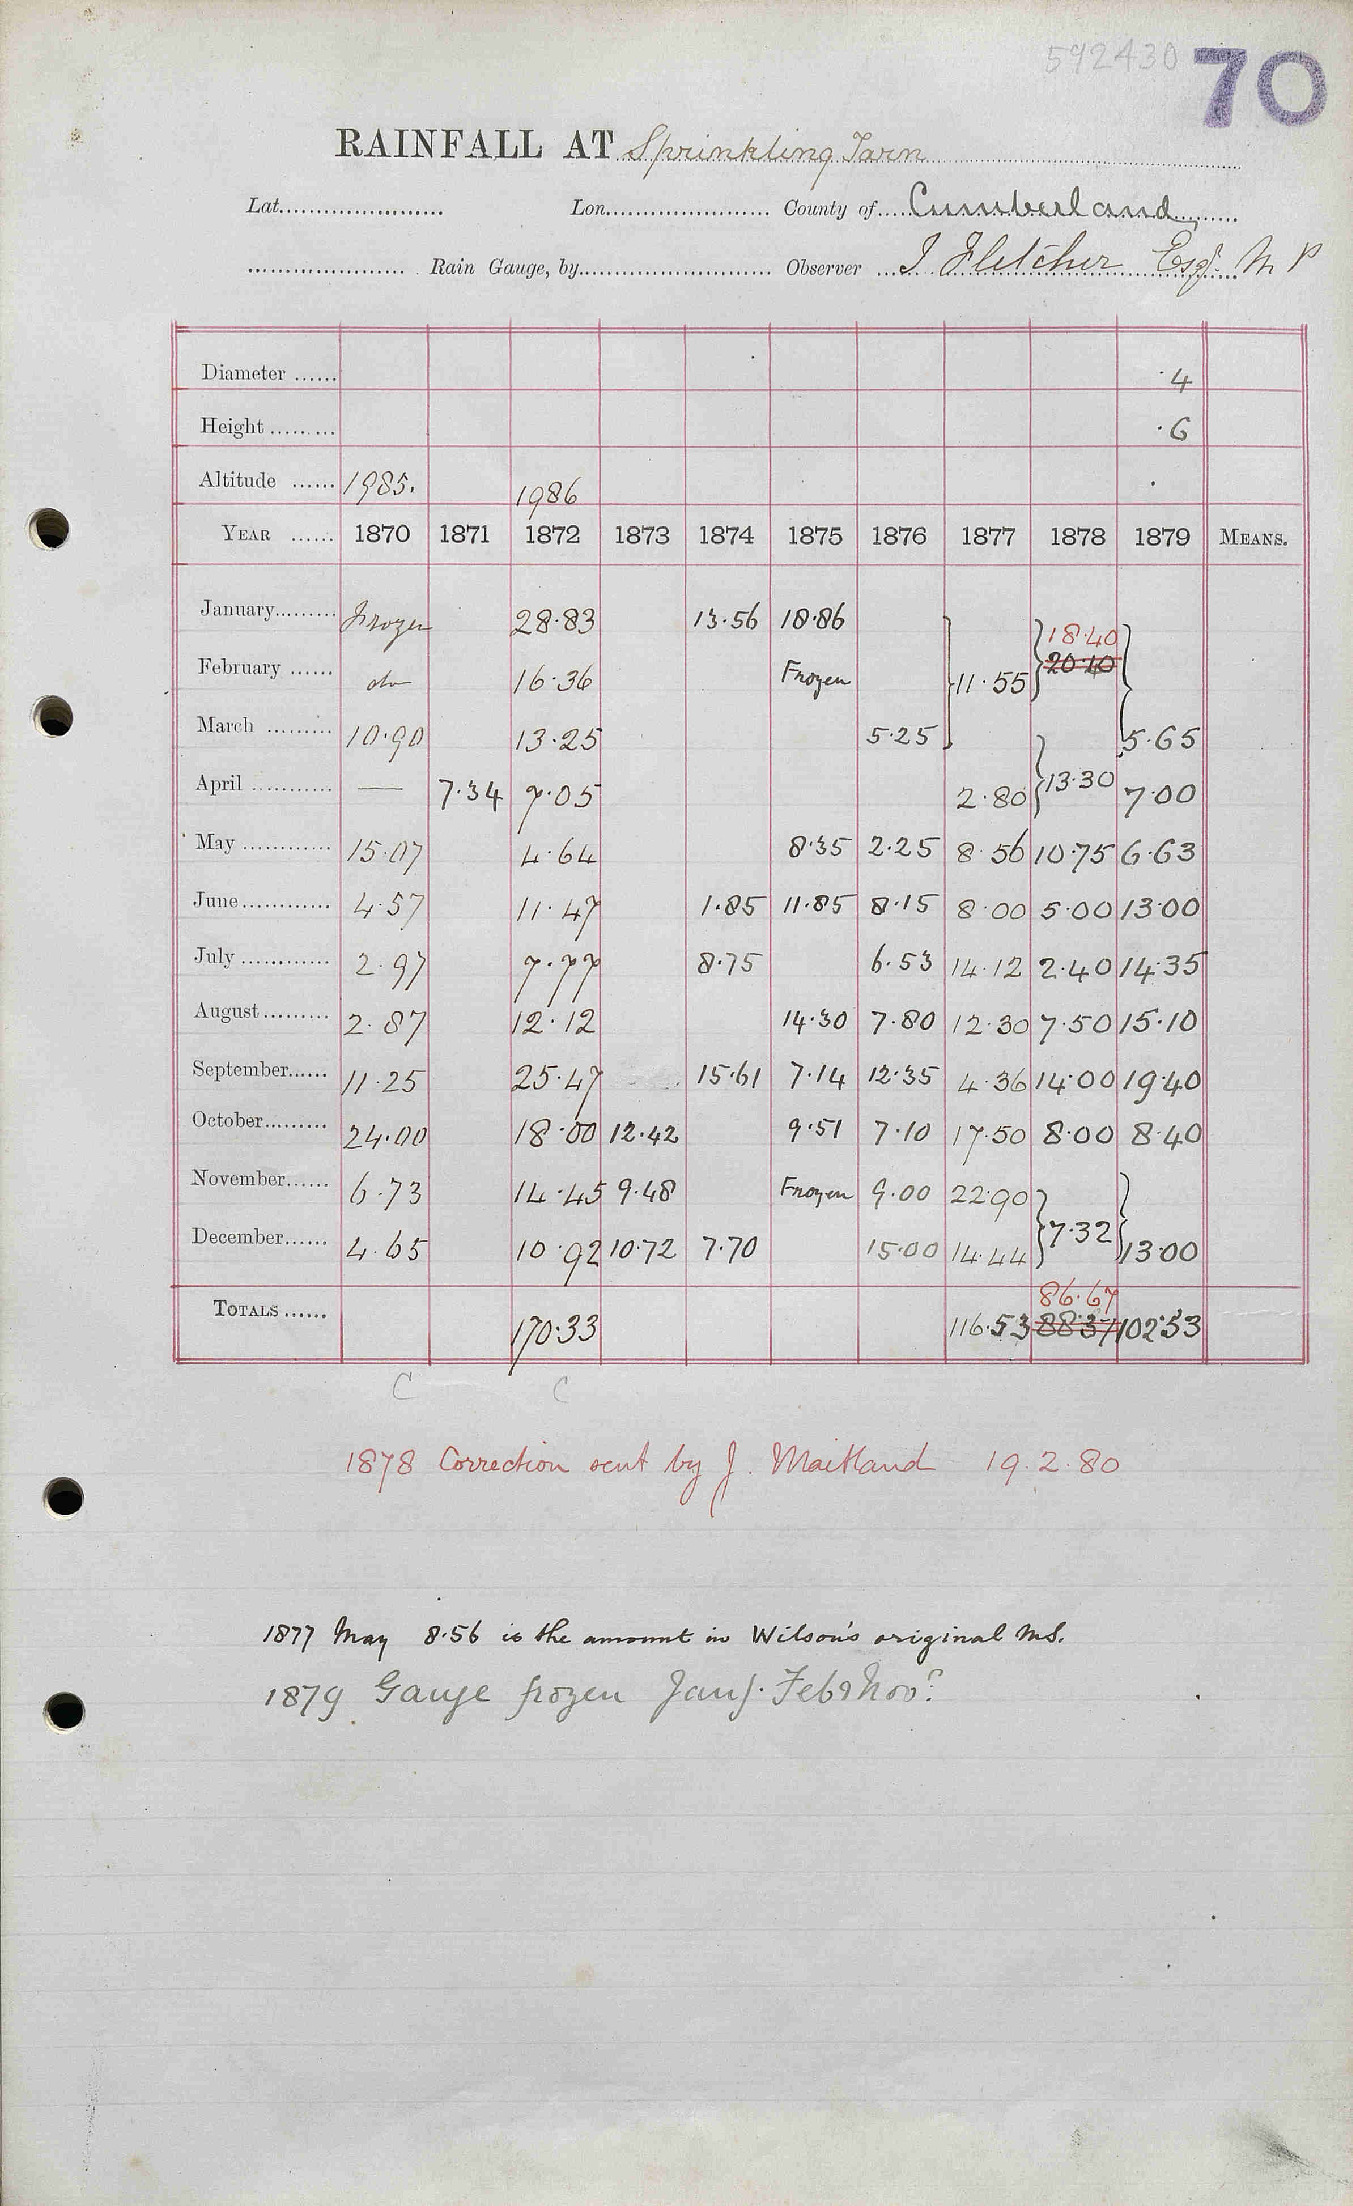 592430 70
RAINFALL AT Sprinkling Tarn
Lat...................... Lon...................... County of....Cumberland
..................... Rain Gauge, by.......................... Observer ...I Fletcher Esqr. M P
Diameter ...... 4
Height ......... 6
Altitude ...... 1985. 1986
YEAR ...... 1870 1871 1872 1873 1874 1875 1876 1877 1878 1879 MEANS.
January......... Frozen 28.83 13.56 18.86 18.40
February ...... do 16.36 Frozen 11.55 20.10
March ......... 10.90 13.25 5.25 5.65
April ............ — 7.34 7.05 2.80 13.30 7.00
May ............. 15.07 4.64 8.35 2.25 8.56 10.75 6.63
June............. 4.57 11.47 1.85 11.85 8.15 8.00 5.00 13.00
July ............. 2.97 7.77 8.75 6.53 14.12 2.40 14.35
August.......... 2.87 12.12 14.30 7.80 12.30 7.50 15.10
September...... 11.25 25.47 15.61 7.14 12.35 4.36 14.00 19.40
October......... 24.00 18.00 12.42 9.51 7.10 17.50 8.00 8.40
November...... 6.73 14.45 9.48 Frozen 9.00 22.90
December...... 4.65 10.92 10.72 7.70 15.00 14.44 7.32 13.00
86.67
TOTALS ...... 170.33 116.53 88.37 102.53
C C
1878 Correction sent by J. Maitland 19.2.80
1877 May 8.56 is the amount in Wilson's original MS.
1879 Gauge frozen Jany. Feb & Nov?